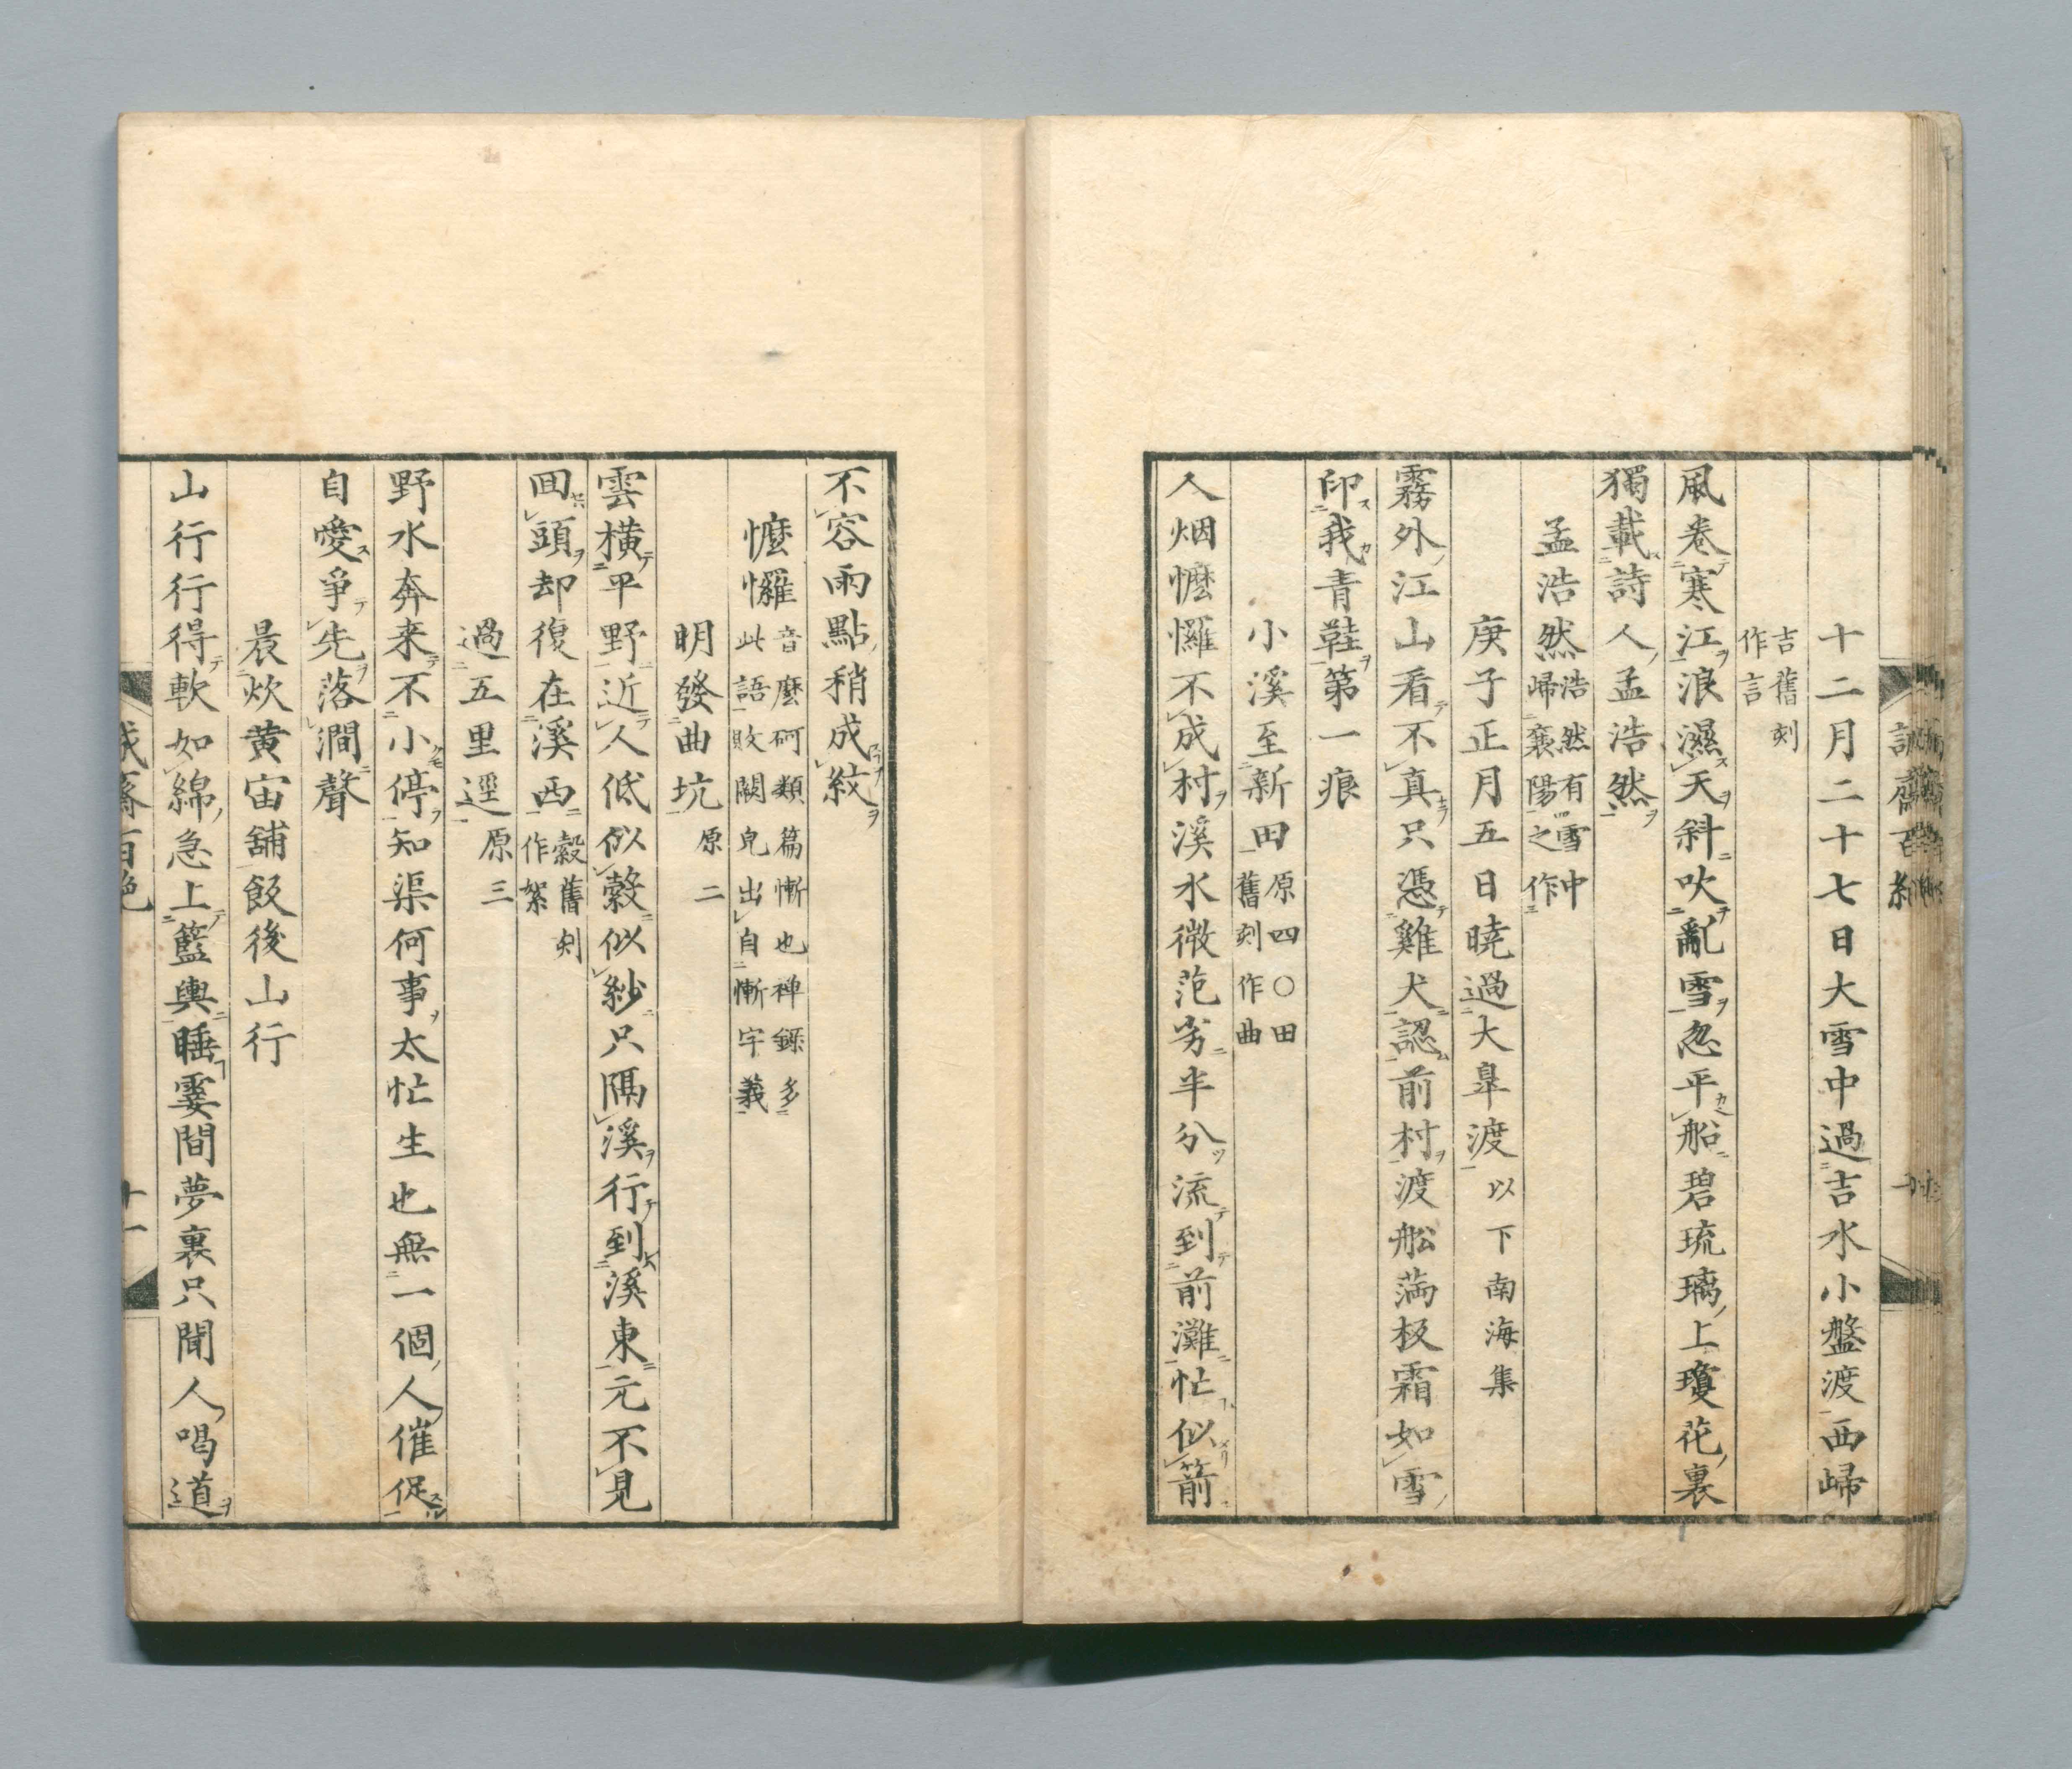 十二月二十七日大雪中過吉水小盤渡西歸
吉舊刻
作言
風卷寒江浪濕天斜吹亂雪忽平船碧琉璃上瓊花裏
獨載詩人孟浩然
孟浩然
浩然有雪中
歸襄陽之作
庚子正月五日曉過大皐渡以下南海集
霧外江山看不真只憑雞犬認前村渡船滿板霜如雪
印我青鞋第一痕
小溪至新田
原四〇田
舊刻作曲
人烟懡㦬不成村溪水微茫劣半分流到前灘忙似箭
不容雨點稍成紋
懡㦬
音麼砢類篇慚也禅錄多
此語敗闕皃出自慚字義
明發曲坑原二
雲橫平野近人低似縠似紗只隔溪行到溪東元不見
回頭却復在溪西
縠舊刻
作絮
過五里逕原三
野水奔来不小停知渠何事太忙生也無一個人催促
自愛爭先落澗聲
晨炊黄宙舖飯後山行
山行行得軟如綿急上籃輿睡霎間夢裏只聞人喝道
誠齋百絶
十一